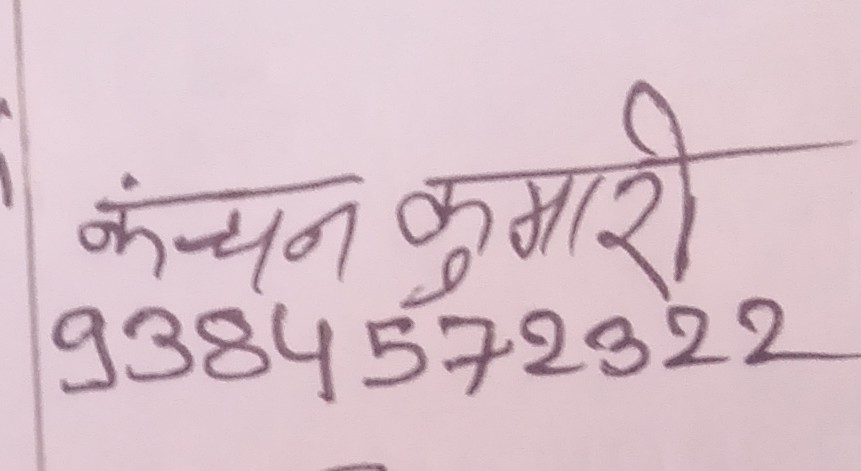 कंचन कुमारी
9384572322